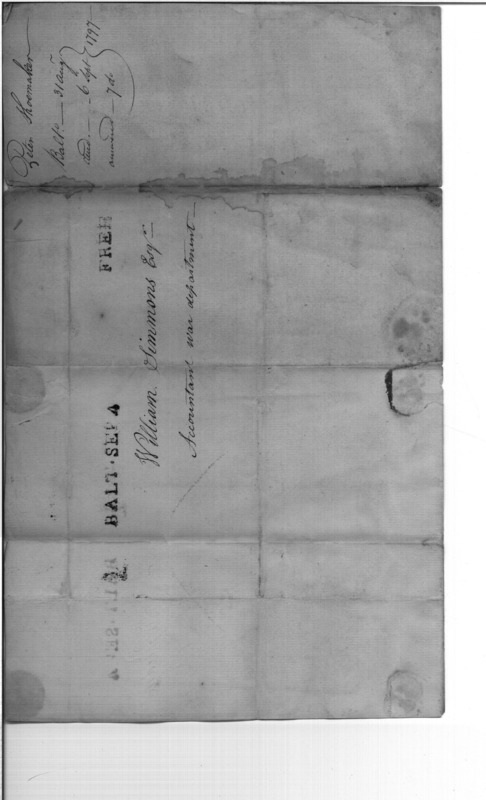 Peter Shoemaker
Balto — 31 Augt
recd. — 6 Sept 1797
answered — 7 do
FREE
BALT·SEP 4
William Simmons Esqr
Accountant war department